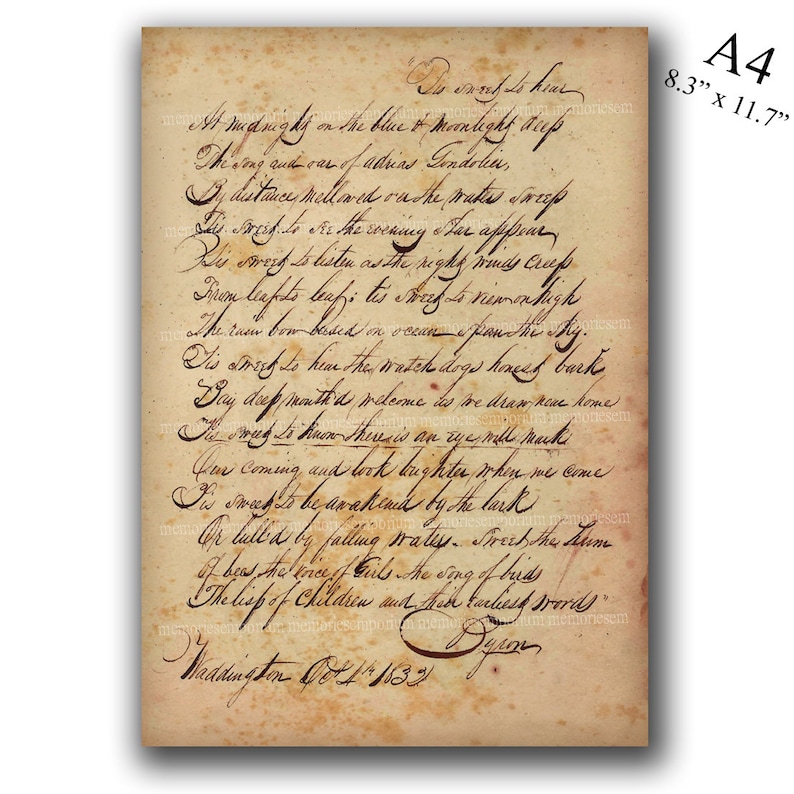 "Tis sweet to hear
At midnight on the blue & moonlight deep
The song and oar of adrias Gondolier,
By distance mellowed o'er the waters sweep
Tis sweet to see the evening star appear
Tis sweet to listen as the night winds creep
From leaf to leaf; tis sweet to view on high
The rain bow based on ocean span the sky.
Tis sweet to hear the watch dogs honest bark
Bay deep mouth'd welcome as we draw near home
Tis sweet to know there is an eye will mark
Our coming and look brighter when we come
Tis sweet to be awakened by the lark
Or lull'd by falling waters. Sweet the hum
Of bees, the voice of Girls the song of birds
The lisp of Children and their earliest words"
Byron
Waddington Oct 4th 1832
A4
8.3" x 11.7"
memoriesemporium memoriesemporium memoriesem